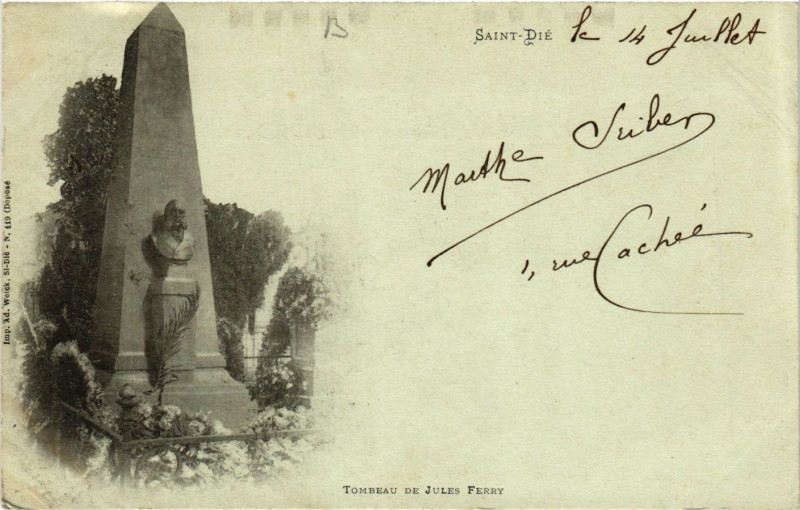 B
SAINT-DIÉ le 14 Juillet
Marthe
1, rue Cachée
Imp. Ad. Weick, St-Dié - N. 119 (Déposé
TOMBEAU DE JULES FERRY